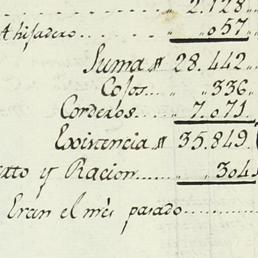 .................. „ 2.128
Ahijadero..... „ „ 057
Suma # 28.442
Colos... „ „ 336
Corderos... 7.071
Existencia # 35.849
xto y Racion..... „ „ 304
Eran el mes pasado..........